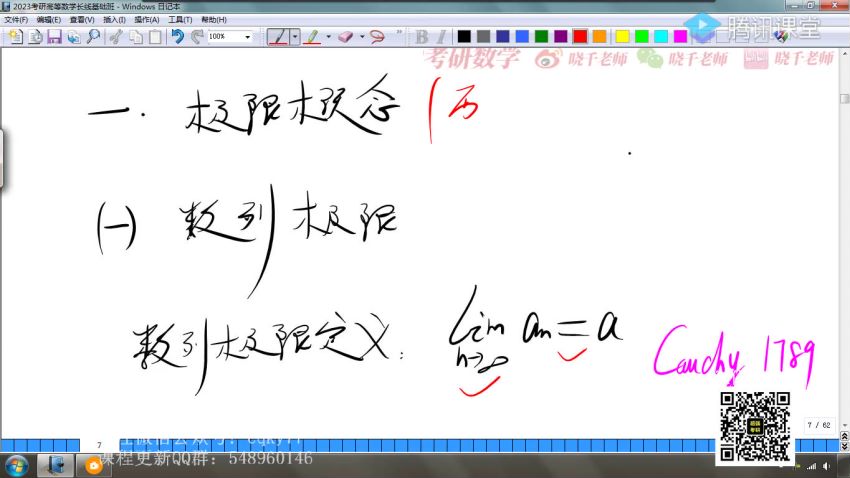 2023考研高等数学长线基础班 - Windows 日记本
文件(F) 编辑(E) 查看(V) 插入(I) 操作(A) 工具(T) 帮助(H)
100% B I
腾讯课堂
考研数学 晓千老师 晓千老师 晓千老师
一. 极限概念 (两
(一) 数列极限
数列极限定义: lim aₙ = a
n→∞
Cauchy 1789
7 / 62
7
课程更新QQ群: 548960146